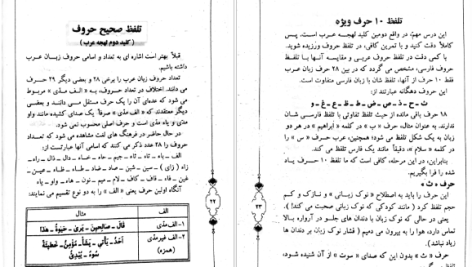 تلفظ صحیح حروف
(کلید دوم لهجه عرب)
قبلاً بهتر است اشاره ای به تعداد و اسامی حروف زبان عرب
داشته باشیم.
تعداد حروف زبان عرب را برخی ۲۸ و بعضی دیگر ۲۹ حرف
می دانند. اختلاف در تعداد حروف، به «الف مدّی» مربوط
می شود که عدّه‌ای آن را یک حرف مستقل می دانند، و بعضی
دیگر معتقدند که «الف مدّی» صرفاً یک صدای کشیده مانند واو
مدّی و یاء مدّی است و حرف اصلی محسوب نمی شود.
در حال حاضر در فرهنگ های لغت مشاهده می شود که تعداد
حروف را ۲۸ عدد ذکر می کنند که اسامی آنها عبارتست از:
الف ـ باء ـ تاء ـ ثاء ـ جیم ـ حاء ـ خاء ـ دال ـ ذال ـ راء ـ
زاء (زای) ـ سین ـ شین ـ صاد ـ ضاد ـ طاء ـ ظاء ـ عین ـ
غین ـ فاء ـ قاف ـ کاف ـ لام ـ میم ـ نون ـ هاء ـ واو ـ یاء
آنگاه اولین حرف یعنی «الف» را به دو نوع تقسیم می نمایند:
الف مثال
۱- الف مدّی قالَ ـ صالِحینَ ـ یَریٰ ـ حَیٰوةُ ـ هٰذا
۲- الف غیرمدّی أَحَدٌ ـ یَأْتی ـ
(همزه) سُوءَ ـ
۲۲
تلفظ ۱۰ حرف ویژه
این درس مهمّ، در واقع دومین کلید لهجه عرب است. پس
کاملاً دقت کنید و با تمرین کافی، در تلفظ حروف ورزیده شوید.
با دقت در تلفظ حروف عربی و مقایسه آنها با تلفظ
حروف فارسی، مشخص می گردد که در بین ۲۸ حرف زبان عرب
فقط ۱۰ حرف از آنها، شبیه زبان فارسی تلفظ نمی شوند.
این حروف دهگانه عبارتند از:
ث ـ ح ـ ذ ـ ص ـ ض ـ ط ـ ظ ـ ع ـ غ ـ و
۱۸ حرف باقی مانده از حیث تلفظ تفاوتی با زبان فارسی
ندارند، به عنوان مثال، حرف «ب» در کلمه «ابراهیم» در هر دو
زبان به یک شکل تلفظ می شود؛ همچنین، عرب حرف «س» را
در کلمه «سلام» دقیقاً مانند یک فارس تلفظ می کند.
بنابراین، در این مرحله، کافی است که ما تلفظ ۱۰ حرف یاد
شده را فرا بگیریم.
حرف «ث»
این حرف را باید به اصطلاح «نوک زبانی» و نازک و کم
حجم تلفظ کرد (مانند کودکی که نوک زبانی صحبت می کند!)
یعنی در حالی که نوک زبان با دندان های جلو در آرواره بالا
تماس دارد، هوا را به بیرون می دمیم (فشار زبان بر دندان ها
زیاد نباشد).
حرف «ث» بدون این که صدای «سوت» از آن شنیده شود،
۲۳